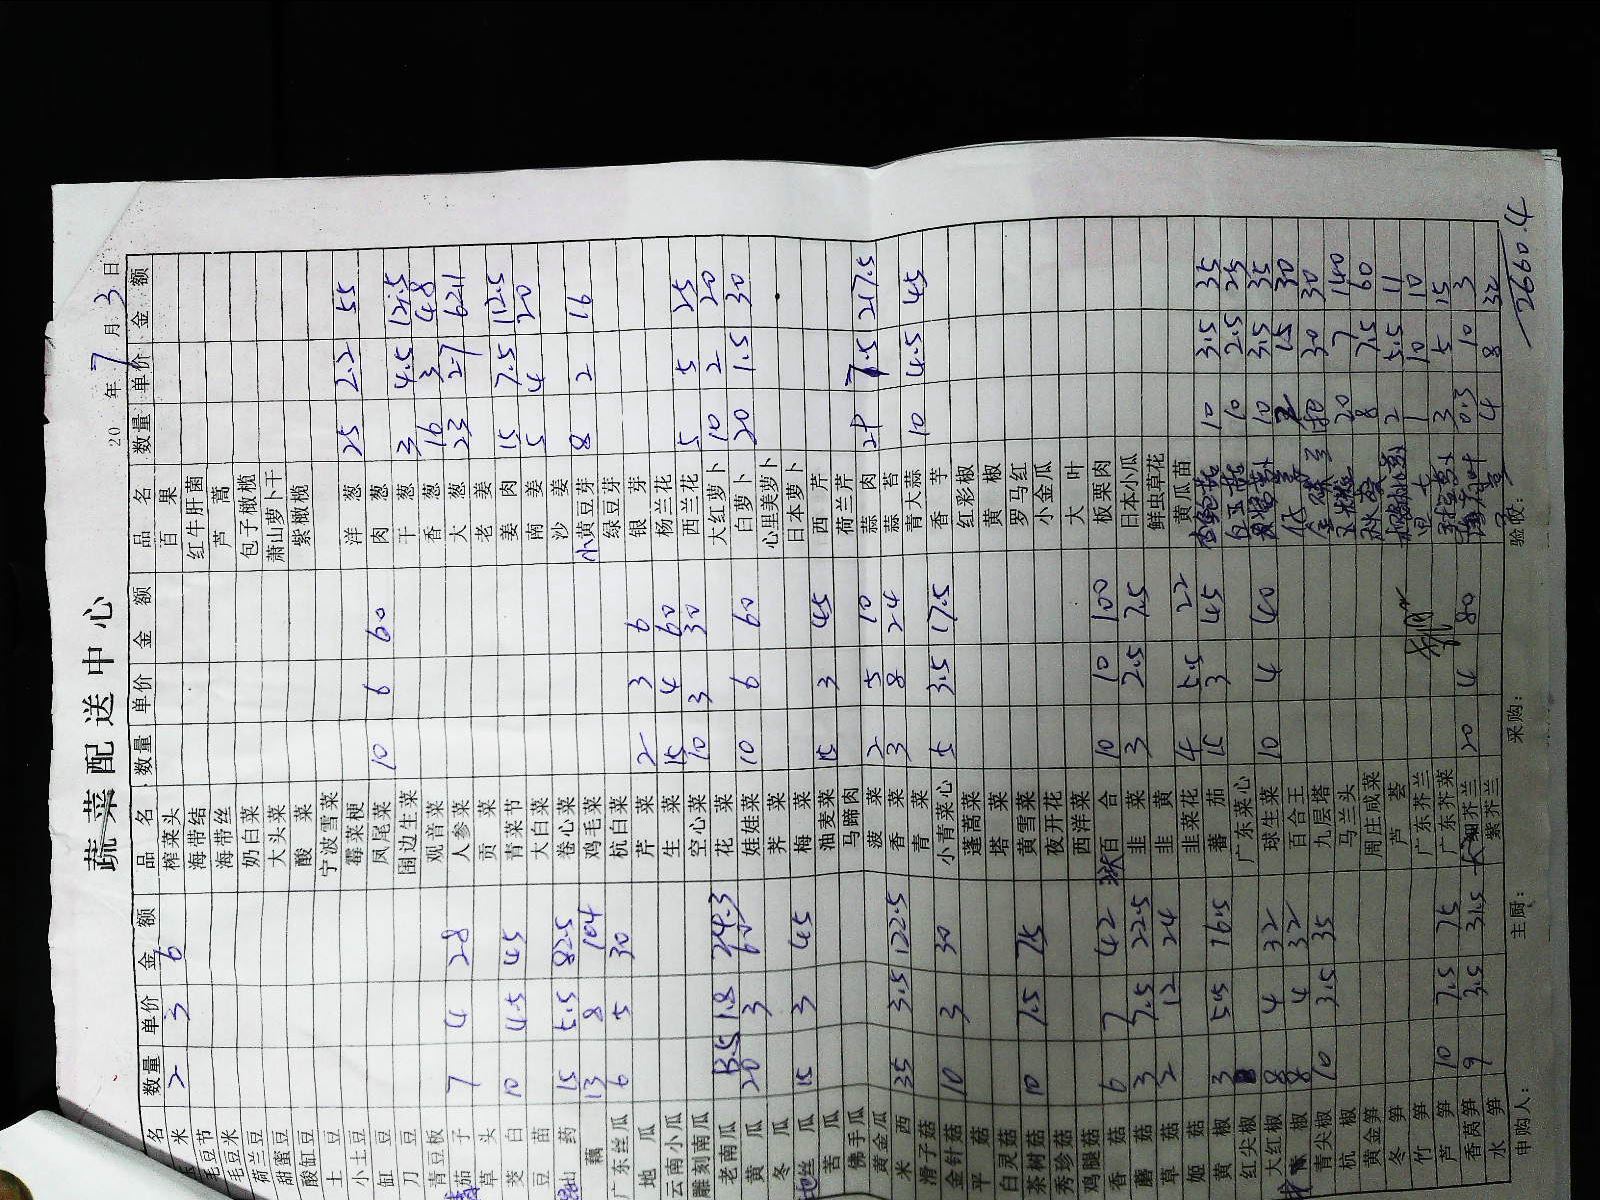 蔬菜配送中心
20 年 7 月 3 日
名 数量 单价 金额 品名 数量 单价 金额 品名 数量 单价 金额
米 2 3 6 榨菜头 百果
毛豆节 海带结 红牛肝菌
毛豆米 海带丝 芦蒿
荷兰豆 奶白菜 包子橄榄
甜蜜豆 大头菜 萧山萝卜干
酸缸豆 酸菜 紫橄榄
土豆 宁波雪菜
小土豆 霉菜梗 洋葱 25 2.2 55
缸豆 凤尾菜 10 6 60 肉葱
刀豆 围边生菜 干葱 3 4.5 12.5
青豆板 观音菜 香葱 16 3 48
茄子 7 4 28 人参菜 大葱 23 2.7 62.1
草头 贡菜 老姜
茭白 10 4.5 45 青菜节 姜肉 15 7.5 112.5
豆苗 大白菜 南姜 5 4 20
山药 15 5.5 82.5 卷心菜 沙姜
藕 13 8 104 鸡毛菜 小黄豆芽 8 2 16
广东丝瓜 6 5 30 杭白菜 绿豆芽
地瓜 芹菜 2 3 6 银芽
云南小瓜 生菜 15 4 60 杨兰花
雕刻南瓜 空心菜 10 3 30 西兰花 5 5 25
老南瓜 13.5 1.8 24.3 花菜 大红萝卜 10 2 20
黄瓜 20 3 60 娃娃菜 10 6 60 白萝卜 20 1.5 30
冬瓜 荠菜 心里美萝卜
丝瓜 15 3 45 梅菜 日本萝卜
苦瓜 油麦菜 15 3 45 西芹
佛手瓜 马蹄肉 荷兰芹
黄金瓜 菠菜 2 5 10 蒜肉 29 7.5 217.5
米西 35 3.5 122.5 香菜 3 8 24 蒜苔
滑子菇 青菜 青大蒜 10 4.5 45
金针菇 10 3 30 小青菜心 5 3.5 17.5 香芋
平菇 蓬蒿菜 红彩椒
白灵菇 塔菜 黄椒
茶树菇 10 7.5 75 黄雪菜 罗马红
秀珍菇 夜开花 小金瓜
鸡腿菇 西洋菜 大叶
香菇 6 7 42 百合 10 10 100 板栗肉
蘑菇 3 7.5 22.5 韭菜 3 2.5 7.5 日本小瓜
草菇 2 12 24 韭黄 鲜虫草花
姬菇 韭菜花 4 5.5 22 黄瓜苗
黄椒 3 5.5 16.5 蕃茄 15 3 45 10 3.5 35
红尖椒 广东菜心 白玉菇 10 2.5 25
大红椒 8 4 32 球生菜 10 4 40 10 3.5 35
青椒 8 4 32 百合王 2 15 30
青尖椒 10 3.5 35 九层塔 30 30
杭椒 马兰头 20 7 140
黄金笋 周庄咸菜 8 7.5 60
冬笋 芦荟 2 5.5 11
竹笋 广东芥兰 1 10 10
芦笋 10 7.5 75 广东芥菜 3 5 15
香莴笋 9 3.5 31.5 细芥兰 20 4 80 0.3 10 3
水笋 紫芥兰 4 8 32
申购人： 主厨： 采购： 验收：
2660.4